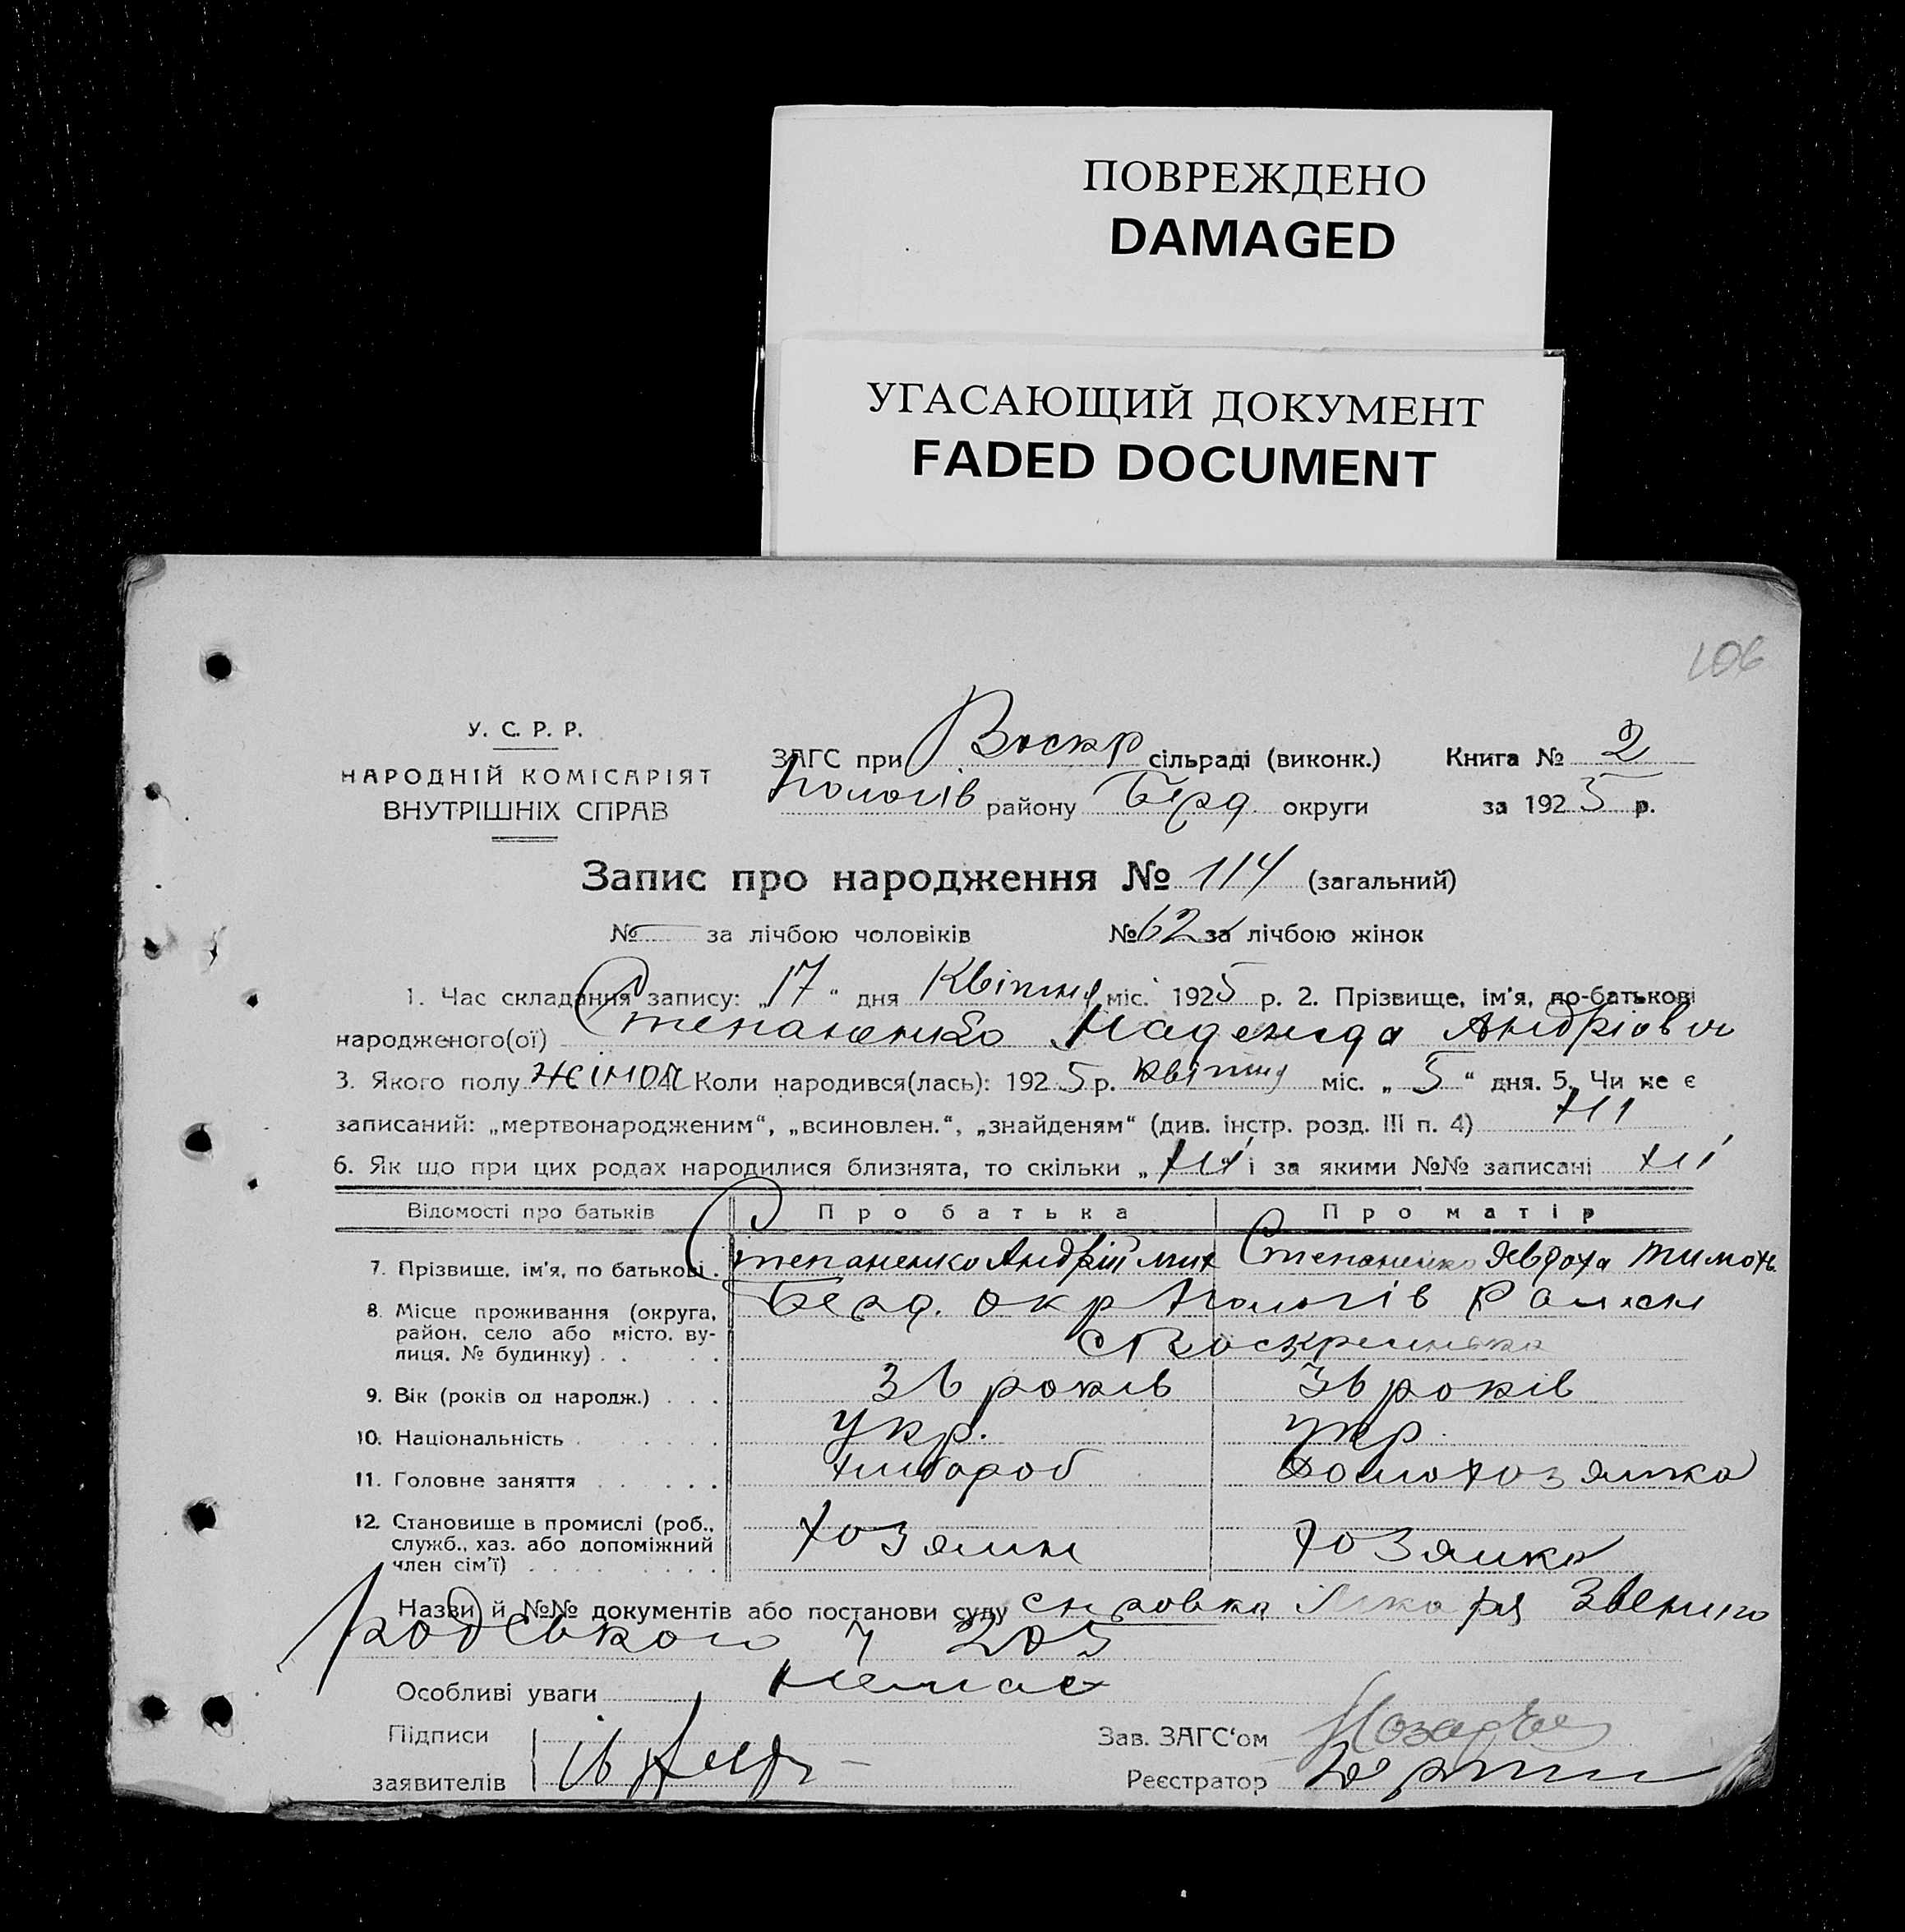 ПОВРЕЖДЕНО
DAMAGED
УГАСАЮЩИЙ ДОКУМЕНТ
FADED DOCUMENT
106
У. С. Р. Р.
НАРОДНІЙ КОМІСАРІЯТ
ВНУТРІШНІХ СПРАВ
ЗАГС при Воскр сільраді (виконк.) Книга № 2
Пологів району Берд округи за 1925 р.
Запис про народження № 114 (загальний)
№ — за лічбою чоловіків № 62 за лічбою жінок
1. Час складання запису: „17“ дня Квітня міс. 1925 р. 2. Прізвище, ім'я, по-батькові
народженого(ої) Степаненко Надежда Андріовна
3. Якого полу жіноч 4. Коли народився(лась): 1925 р. Квітня міс. „5“ дня. 5. Чи не є
записаний: „мертвонародженим“, „всиновлен.“, „знайденям“ (див. інстр. розд. III п. 4) ні
6. Як що при цих родах народилися близнята, то скільки „ні“ і за якими №№ записані ні
Відомості про батьків Про батька Про матір
7. Прізвище, ім'я, по батькові . Степаненко Андрій Мих Степаненко Явдоха Тимохв.
8. Місце проживання (округа, район, село або місто, вулиця, № будинку) . . . . Берд. окр Пологів
с Воскресенька
9. Вік (років од народж.) . . . 36 років 36 років
10. Національність . . . . . . . укр. укр.
11. Головне заняття . . . . . . хлібороб домохозяйка
12. Становище в промислі (роб., служб., хаз. або допоміжний член сім'ї) . . . . . . . . . хозяин хозяйка
Назви й №№ документів або постанови суду справка лікаря Звениго
родського 205
Особливі уваги немає
Підписи
заявителів
Зав. ЗАГС'ом
Реєстратор